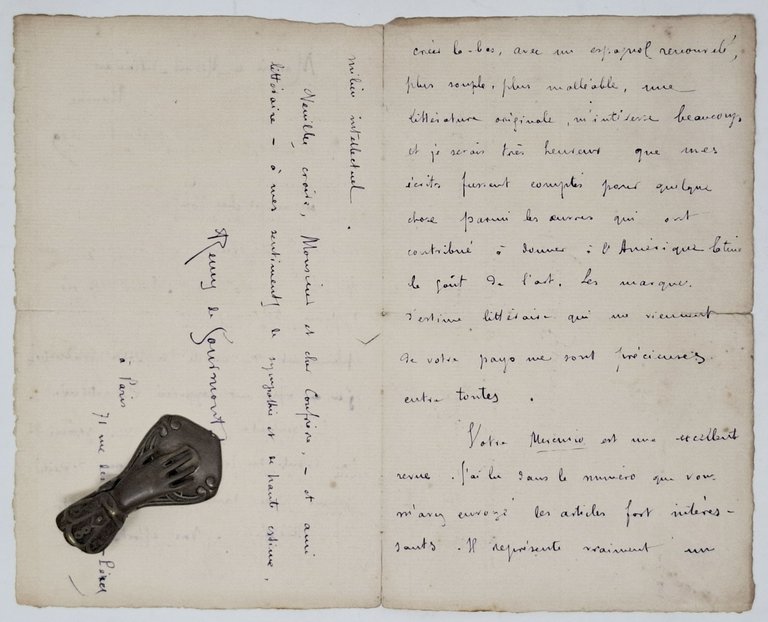 créer là-bas, avec un espagnol renouvelé,
plus souple, plus malléable, une
littérature originale, m'intéresse beaucoup,
et je serais très heureux que mes
écrits fussent comptés pour quelque
chose parmi les œuvres qui ont
contribué à donner à l'Amérique latine
le goût de l'art. Les marques
d'estime littéraire qui me viennent
de votre pays me sont précieuses
entre toutes.
Votre Mercurio est une excellent
revue. J'ai lu dans le numéro que vous
m'avez envoyé les articles fort intéres-
sants. Il représente vraiment un
milieu intellectuel.
Veuillez croire, Monsieur et cher Confrère, – et ami
littéraire – à mes sentiments de sympathie et de haute estime,
Remy de Gourmont
à Paris
71 rue des Pères